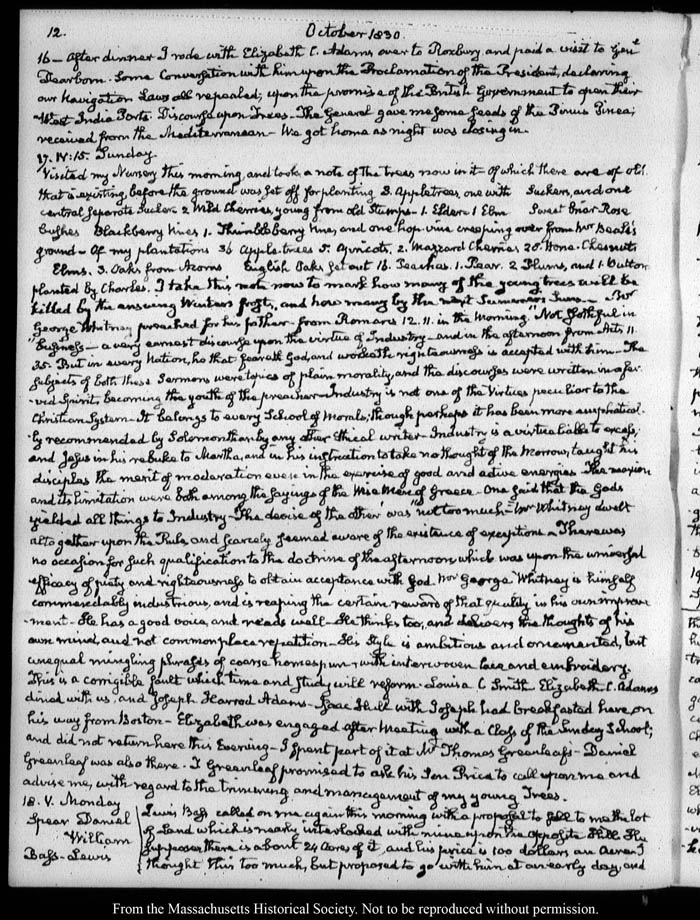 12. October 1830.
16 — After dinner I rode with Elizabeth C. Adams over to Roxbury and paid a visit to Genl
Dearborn. Some Conversation with him upon the Proclamation of the President, declaring
our Navigation Laws all repealed; upon the promise of the British Government to open their
West India Ports. Discourse upon Trees — The General gave me some seeds of the Pinus Pinea;
received from the Mediterranean — We got home as night was closing in.
17. IV:15. Sunday
Visited my Nursery this morning, and took a note of the trees now in it — of which there are of old
that is existing before the ground was set off for planting 3. Apple trees, one with Suckers, and one
central separate sucker. 2 Wild Cherries, young from old stumps — 1. Elder. 1 Elm Sweet briar Rose
bushes Blackberry Vines, 1. Thimbleberry Vine, and one hop-vine creeping over from Mr Beale's
ground — Of my plantations 36 Apple-trees 5. Apricots. 2. Mazzard Cherries 20. Horse-Chesnuts
Elms. 3. Oaks from Acorns English Oaks set out 16. Peaches. 1. Pear. 2 Plums, and 1. Button
planted by Charles. I take this note now to mark how many of the young trees will be
killed by the ensuing Winters frosts, and how many by the next Summers Suns — Mr
George Whitney preached for his father — from Romans 12. 11. in the Morning. "Not slothful in
business — a very earnest discourse upon the virtue of Industry — and in the afternoon from Acts 11.
35. But in every Nation, he that feareth God, and worketh righteousness is accepted with him — The
subjects of both these Sermons were topics of plain morality, and the discourses were written in a fer-
-vid Spirit, becoming the youth of the preacher — Industry is not one of the Virtues peculiar to the
Christian System — It belongs to every School of Morals; though perhaps it has been more emphatical-
-ly recommended by Solomon than by any other Ethical writer — Industry is a virtue liable to excess,
and Jesus in his rebuke to Martha, and in his instruction to take no thought of the Morrow, taught his
disciples the merit of moderation even in the exercise of good and active energies. The maxim
and its limitation were both among the sayings of the Wise Men of Greece — One said that the Gods
yielded all things to Industry — The device of the other was "not too much — Mr Whitney dwelt
altogether upon the Rule, and scarcely seemed aware of the existence of exceptions — There was
no occasion for such qualification to the doctrine of the afternoon, which was upon the universal
efficacy of piety and righteousness to obtain acceptance with God. Mr George Whitney is himself
commendably industrious, and is reaping the certain reward of that quality in his own improve-
-ment — He has a good voice, and reads well — He thinks too, and delivers the thoughts of his
own mind, and not common place repetition — His Style is ambitious and ornamented, but
unequal mingling phrases of coarse homespun — with interwoven lace and embroidery.
This is a corrigible fault which time and study will reform — Louisa C Smith Elizabeth C. Adams
dined with us, and Joseph Harrod Adams — Isaac Hull with Joseph had breakfasted here, on
his way from Boston — Elizabeth was engaged after Meeting with a Class of the Sunday School;
and did not return here this Evening — I spent part of it at Mr Thomas Greenleaf's — Daniel
Greenleaf was also there. T Greenleaf promised to ask his Son Price to call upon me and
advise me, with regard to the trimming and management of my young Trees.
18. V. Monday
Spear Daniel
William
Bass — Lewis
Lewis Bass called on me again this morning with a proposal to sell to me the lot
of Land which is nearly interlocked with mine upon the opposite Hill. He
supposes there is about 24 Acres of it, and his price is 100 dollars an Acre. I
thought this too much, but proposed to go with him at an early day, and
From the Massachusetts Historical Society. Not to be reproduced without permission.